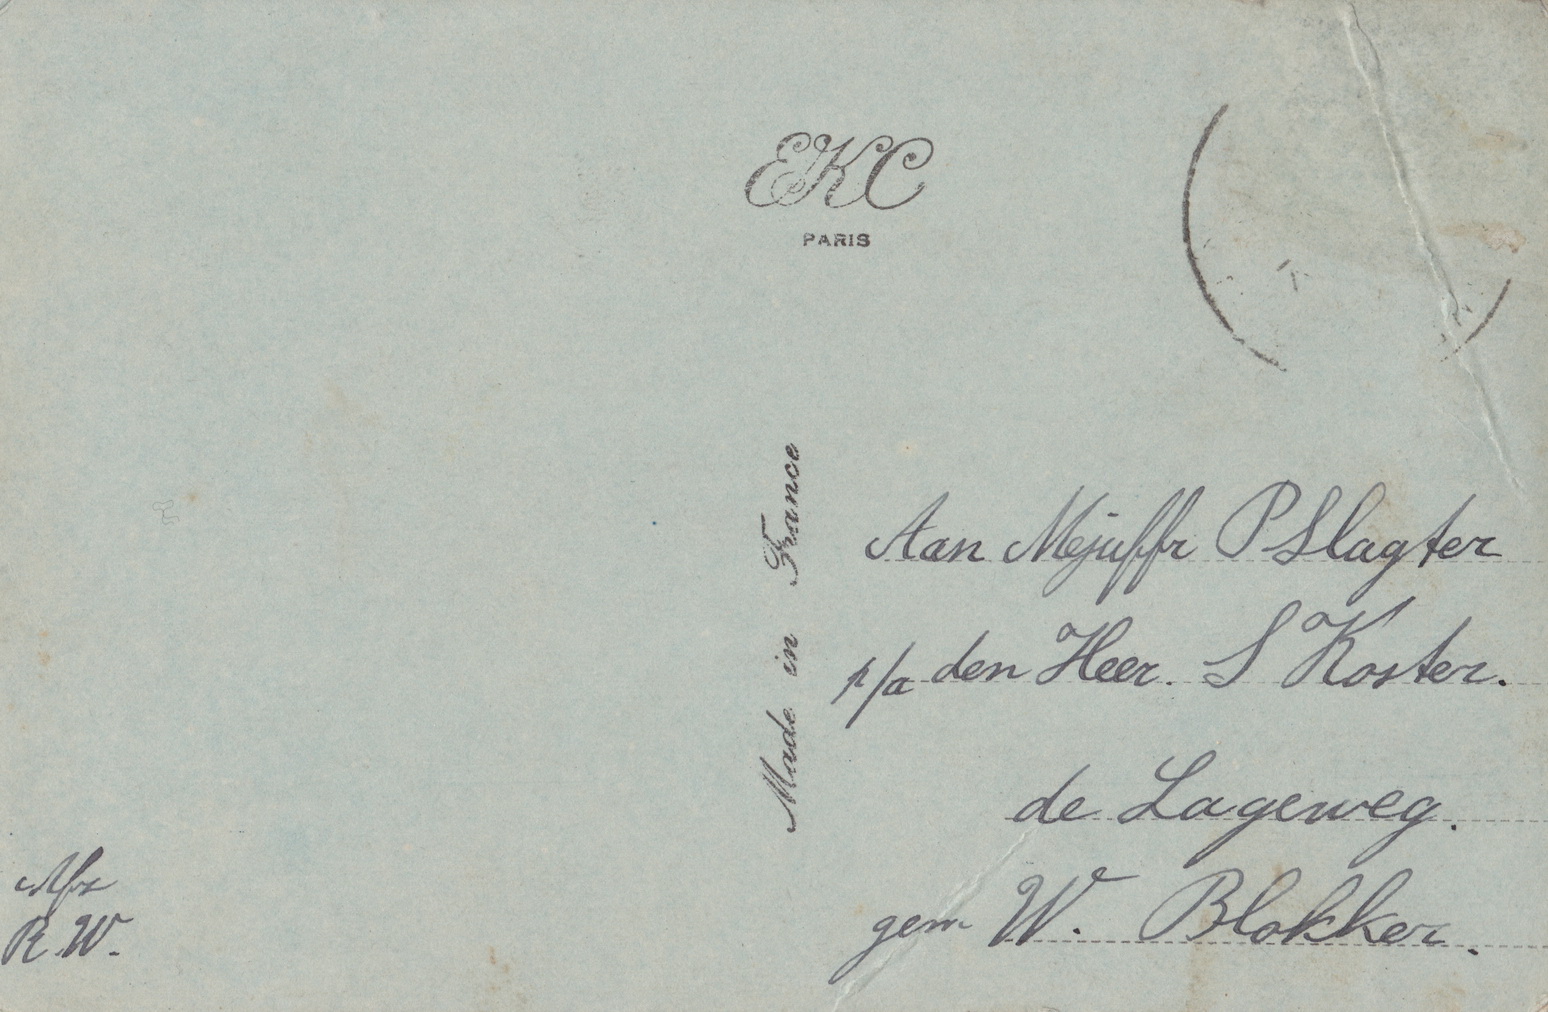 EKC
PARIS
Made in France
Aan Mejuffr P Slagter
p/a den Heer. S Koster.
de Lageweg.
gem W. Blokker.
Afz
R. W.